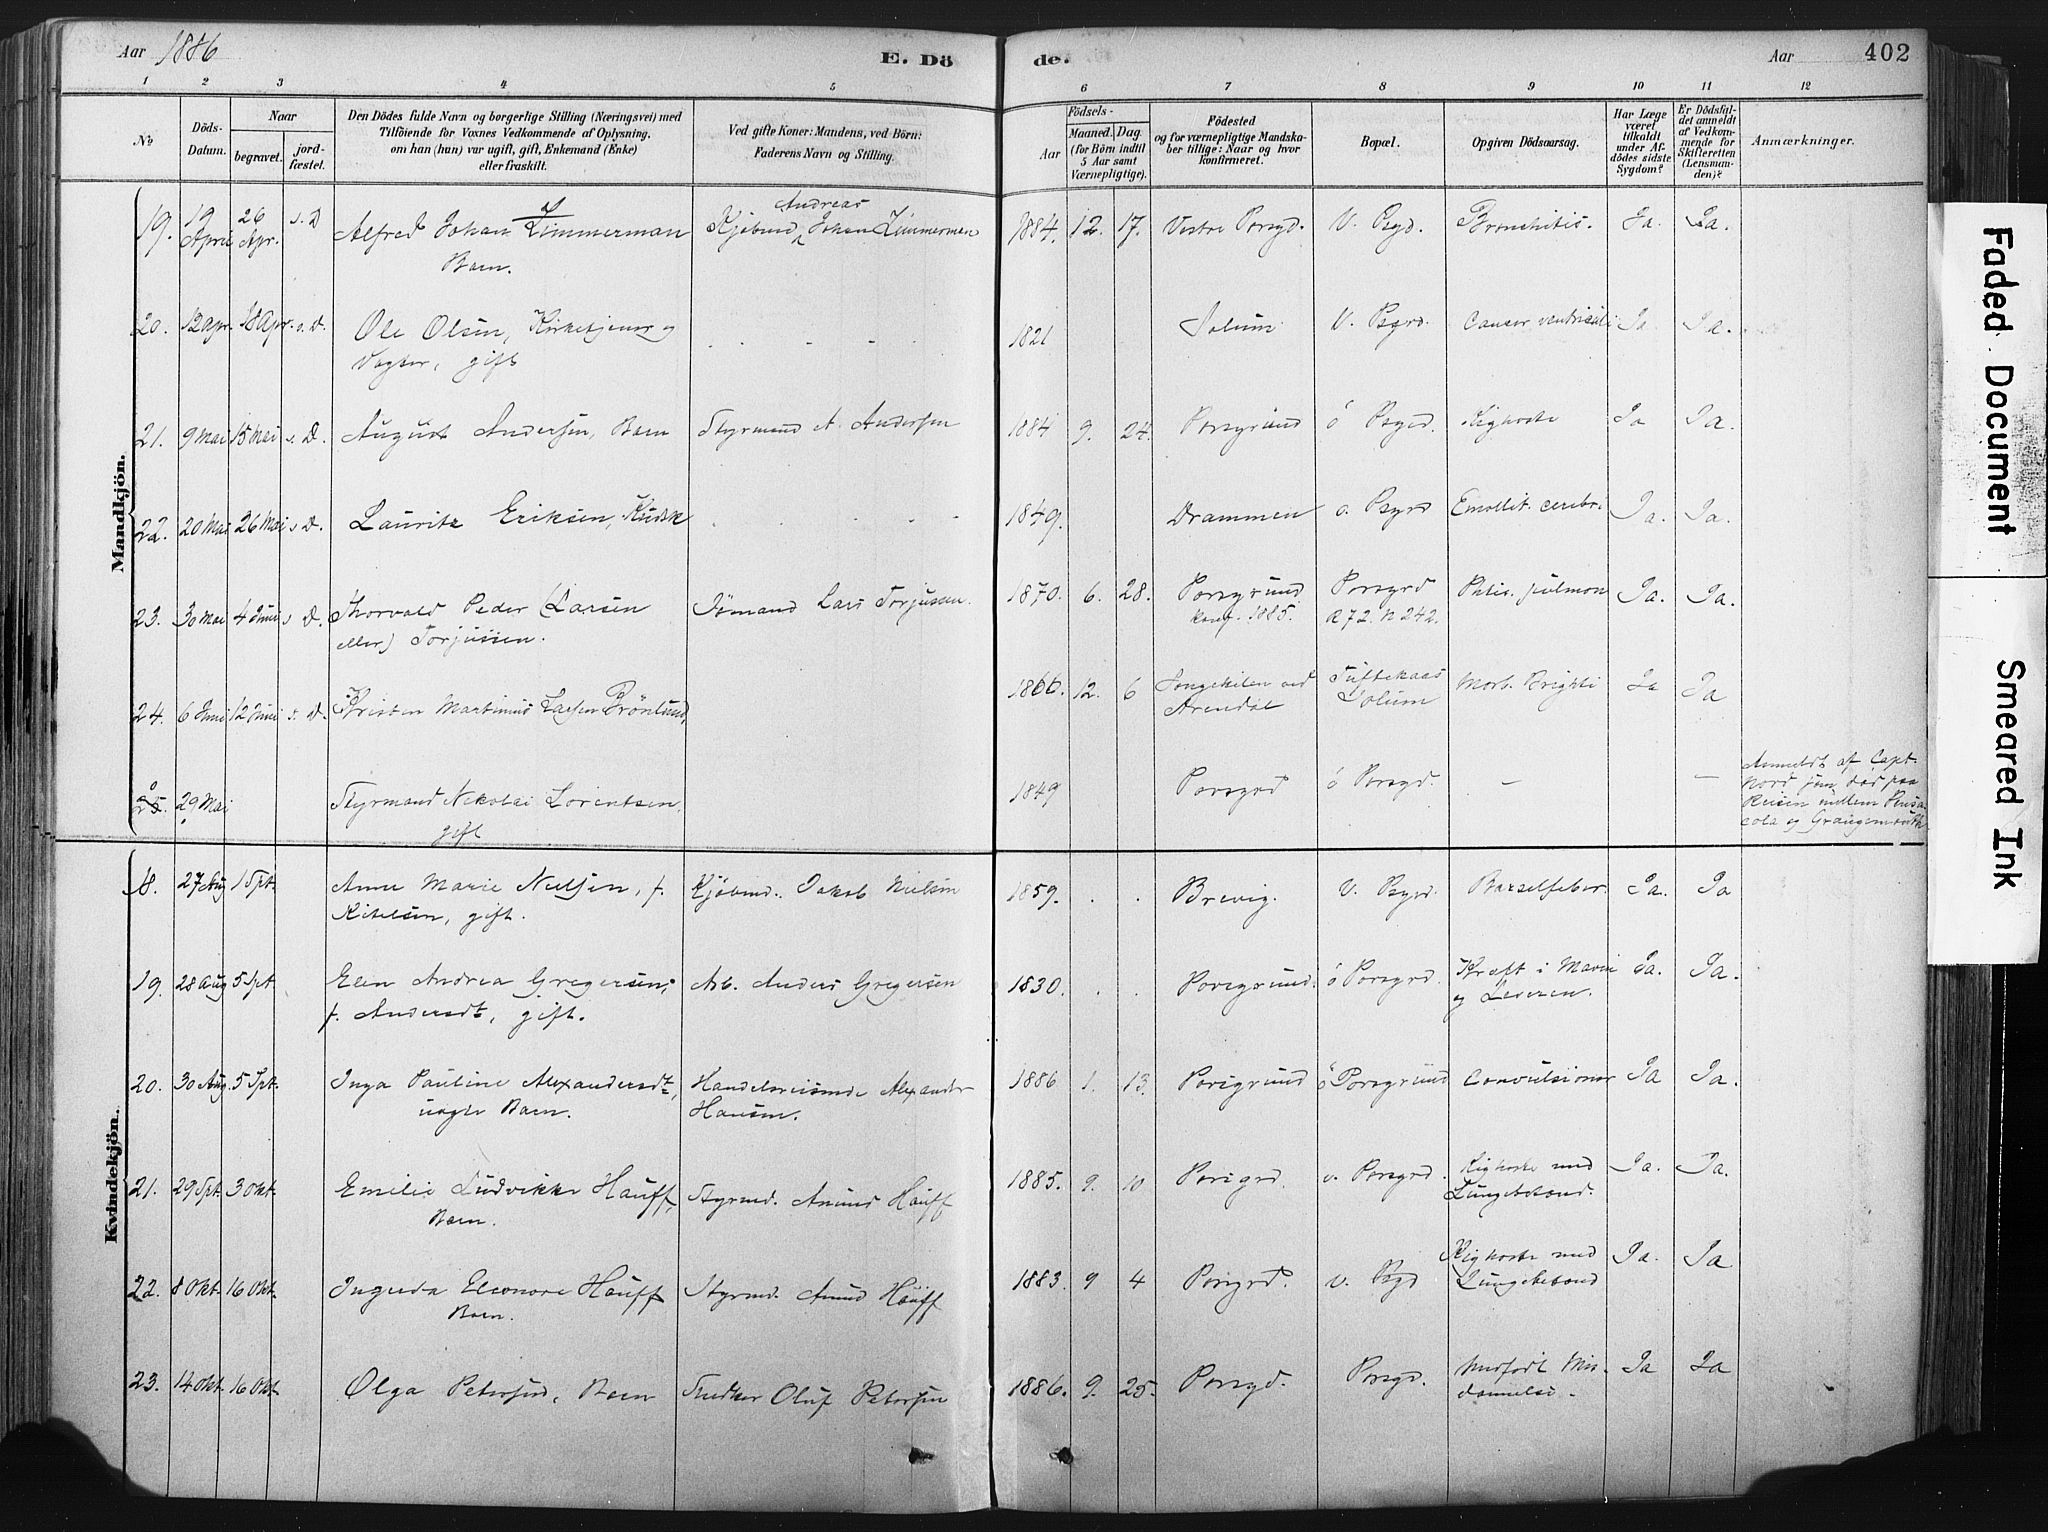 Aar 1886
E. Dö
de.
Aar
402
1 2 3 4 5 6 7 8 9 10 11 12
No
Döds-Datum.
Naar
begravet.
jord-fæstet.
Den Dödes fulde Navn og borgerlige Stilling (Næringsvei) med
Tilföiende for Voxnes Vedkommende af Oplysning,
om han (hun) var ugift, gift, Enkemand (Enke)
eller fraskilt.
Ved gifte Koner: Mandens, ved Börn:
Faderens Navn og Stilling.
Födsels-
Aar
Maaned. Dag
(for Börn indtil
5 Aar samt
Værnepligtige).
Födested
og for værnepligtige Mandska-
ber tillige: Naar og hvor
konfirmeret.
Bopæl.
Opgiven Dödsaarsag.
Har Læge
været
tilkaldt
under Af-
dödes sidste
Sygdom?
Er Dödsfal-
det anmeldt
af Vedkom-
mende for
Skifteretten
(Lensman-
den)?
Anmærkninger.
Mandkjön.
19. 19 April 26 Apr. s. D Alfred Johan Zimmerman Kjøbmd Andreas Johan Zimmerman 1884. 12. 17. Vestre Porsgd. V. Psgd. Bronchitis. Ja. Ja.
Barn.
20. 12 Apr. 18 Apr. s. D. Ole Olsen, Kirketjener og 1821 Solum V. Psgrd. Cancer ventriculi Ja. Ja.
Vægter, gift
21. 9 Mai 15 Mai s. D. August Andersen, Barn Styrmand A. Andersen 1884 9. 24. Porsgrund ö Psgrd. Kighoste Ja Ja.
22. 20 Mai 26 Mai s D. Lauritz Eriksen, Kudsk 1849. Drammen ö. Psgrd Emollit. cerebri Ja. Ja.
23. 30 Mai 4 Juni s D. Thorvald Peder (Larsen Sømand Lars Torjussen. 1870. 6. 28. Porsgrund Porsgrd Phtis. pulmon Ja. Ja.
eller) Torjussen. konf. 1885. A 72. N 242.
24. 6 Juni 12 Juni s. D. Kristen Martinus Larsen Brönlund, 1860. 12. 6 Songekilen ved Tuftekaas Morb. Brighti Ja Ja
Arendal Solum
25. 29 Mai Styrmand Nikolai Lorentsen, 1849 Porsgrd ö Porsgd. – – Anmeldt af Capt.
gift
Nord som död paa
Reisen mellem Pensa-
cola og Grangemouth
Kvindekjön.
18. 27 Aug 1 Spt. Anne Marie Nielsen, f. Kjøbmd. Jakob Nielsen 1859. . . Brevig. V. Psgrd. Barselfeber. Ja. Ja
Kittelsen, gift.
19. 28 Aug 5 Spt. Elen Andrea Gregersen, Arb. Anders Gregersen 1830. . . Porsgrund. ö Porsgrd. Kræft i Maven Ja. Ja.
f. Andersdt, gift. og Leveren.
20. 30 Aug. 5 Spt. Inga Pauline Alexandersdt, Handelsreisende Alexander 1886 1. 13. Porsgrund ö Porsgrund Convulsioner Ja Ja.
uægte Barn. Hansen.
21. 29 Spt. 3 Okt. Emilie Ludvikke Hauff, Styrmd. Amund Hauff 1885. 9. 10 Porsgrd. v. Porsgrd. Kighoste med Ja. Ja.
Barn. Lungebetænd.
22. 8 Okt. 16 Okt. Ingeda Eleonore Hauff Styrmd. Amund Hauff 1883. 9 4 Porsgrd. v. Psgd Kighoste med Ja. Ja
Barn. Lungebetænd
23. 14 Okt. 16 Okt. Olga Petersen, Barn Snedker Oluf Petersen 1886. 9. 25. Porsgd. Porsgd. Medfödt Mis- Ja Ja
dannelse.
Faded Document
Smeared Ink